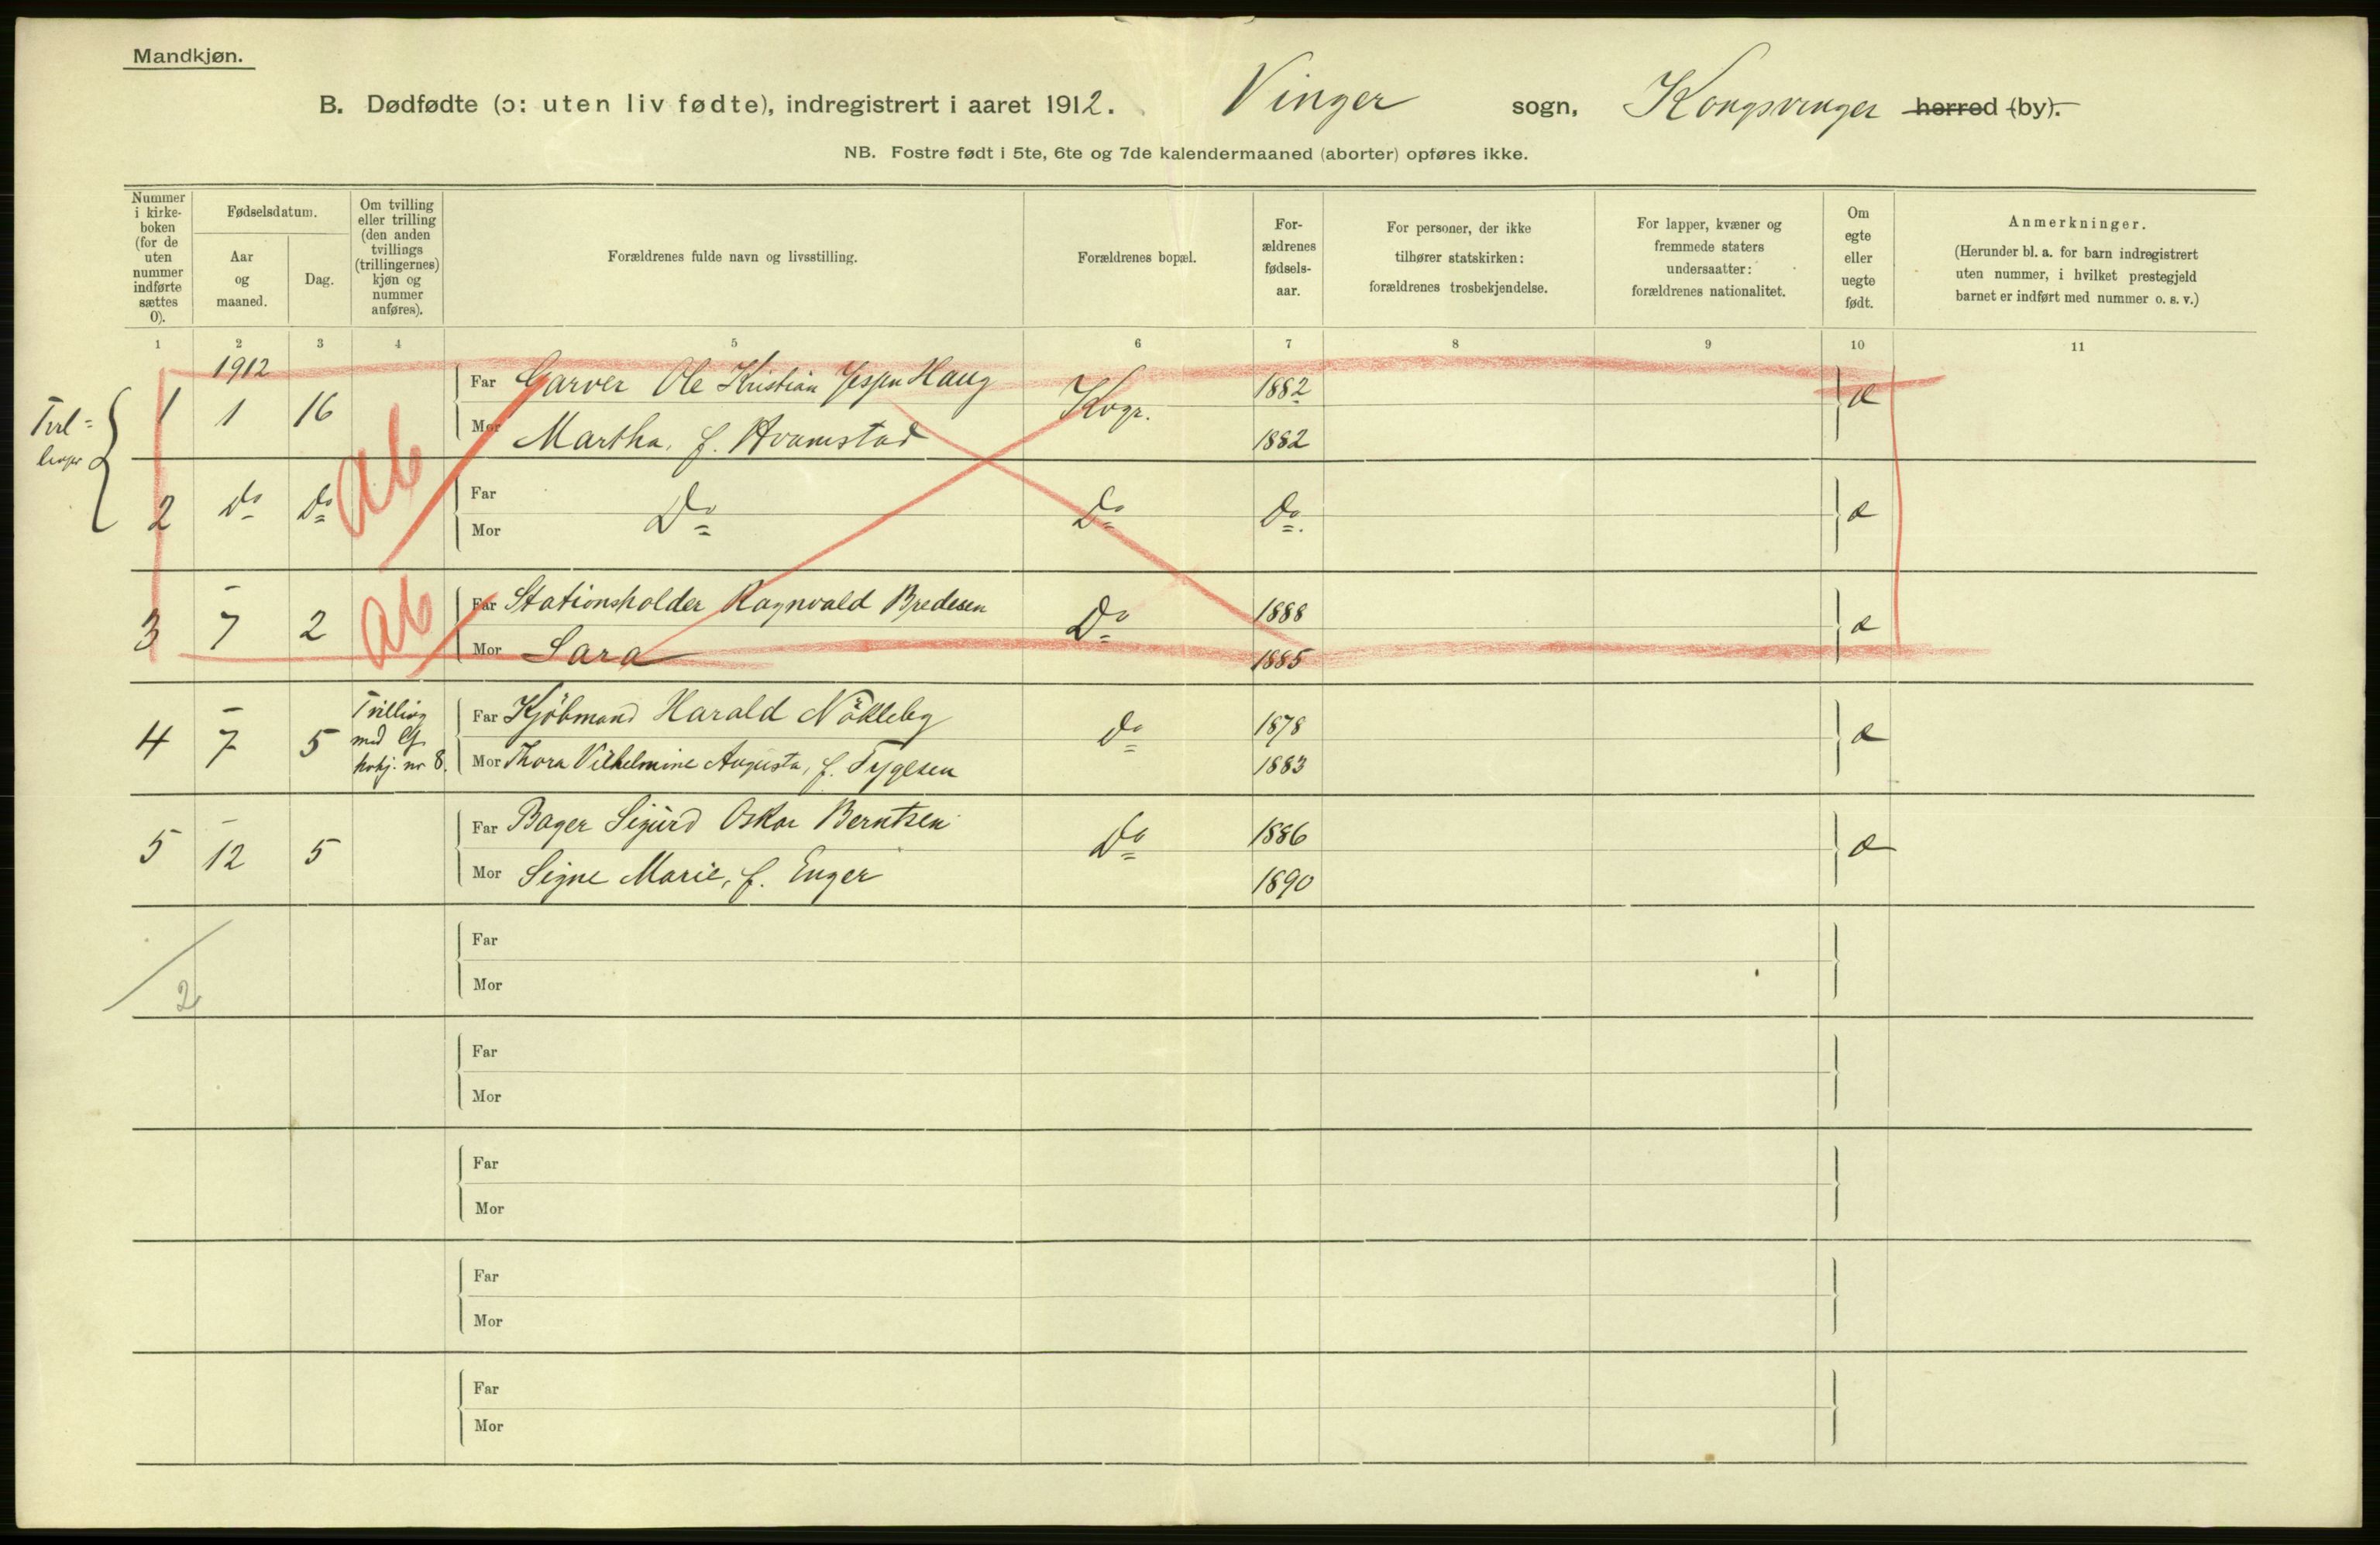 Mandkjøn.
B. Dødfødte (ɔ: uten liv fødte), indregistrert i aaret 1912. Vinger sogn, Kongsvinger herred (by).
NB. Fostre født i 5te, 6te og 7de kalendermaaned (aborter) opføres ikke.
Nummer i kirke- boken (for de uten nummer indførte sættes 0).
Fødselsdatum.
Aar og maaned.
Dag.
Om tvilling eller trilling (den anden tvillings (trillingernes) kjøn og nummer anføres).
Forældrenes fulde navn og livsstilling.
Forældrenes bopæl.
For- ældrenes fødsels- aar.
For personer, der ikke tilhører statskirken: forældrenes trosbekjendelse.
For lapper, kvæner og fremmede staters undersaatter: forældrenes nationalitet.
Om egte eller uegte født.
Anmerkninger.
(Herunder bl. a. for barn indregistrert uten nummer, i hvilket prestegjeld barnet er indført med nummer o. s. v.)
1 2 3 4 5 6 7 8 9 10 11
1912
Tvil=
linger
1 1 16 Far Garver Ole Kristian Jespen Haug Kvgr. 1882 æ
Mor Martha, f. Hvamstad 1882
ab
2 Do Do Far Do Do Do. æ
Mor
3 – 7 2 ab Far Stationsholder Ragnvald Bredesen Do 1888 æ
Mor Sara 1885
4 – 7 5 Tvilling med nr 8. Far Kjöbmand Harald Nökleby Do 1878 æ
Mor Thora Vilhelmine Augusta, f. Tygesen 1883
5 – 12 5 Far Bager Sigurd Oskar Berntsen Do 1886 æ
Mor Signe Marie, f. Enger 1890
Far
2
Mor
Far
Mor
Far
Mor
Far
Mor
Far
Mor